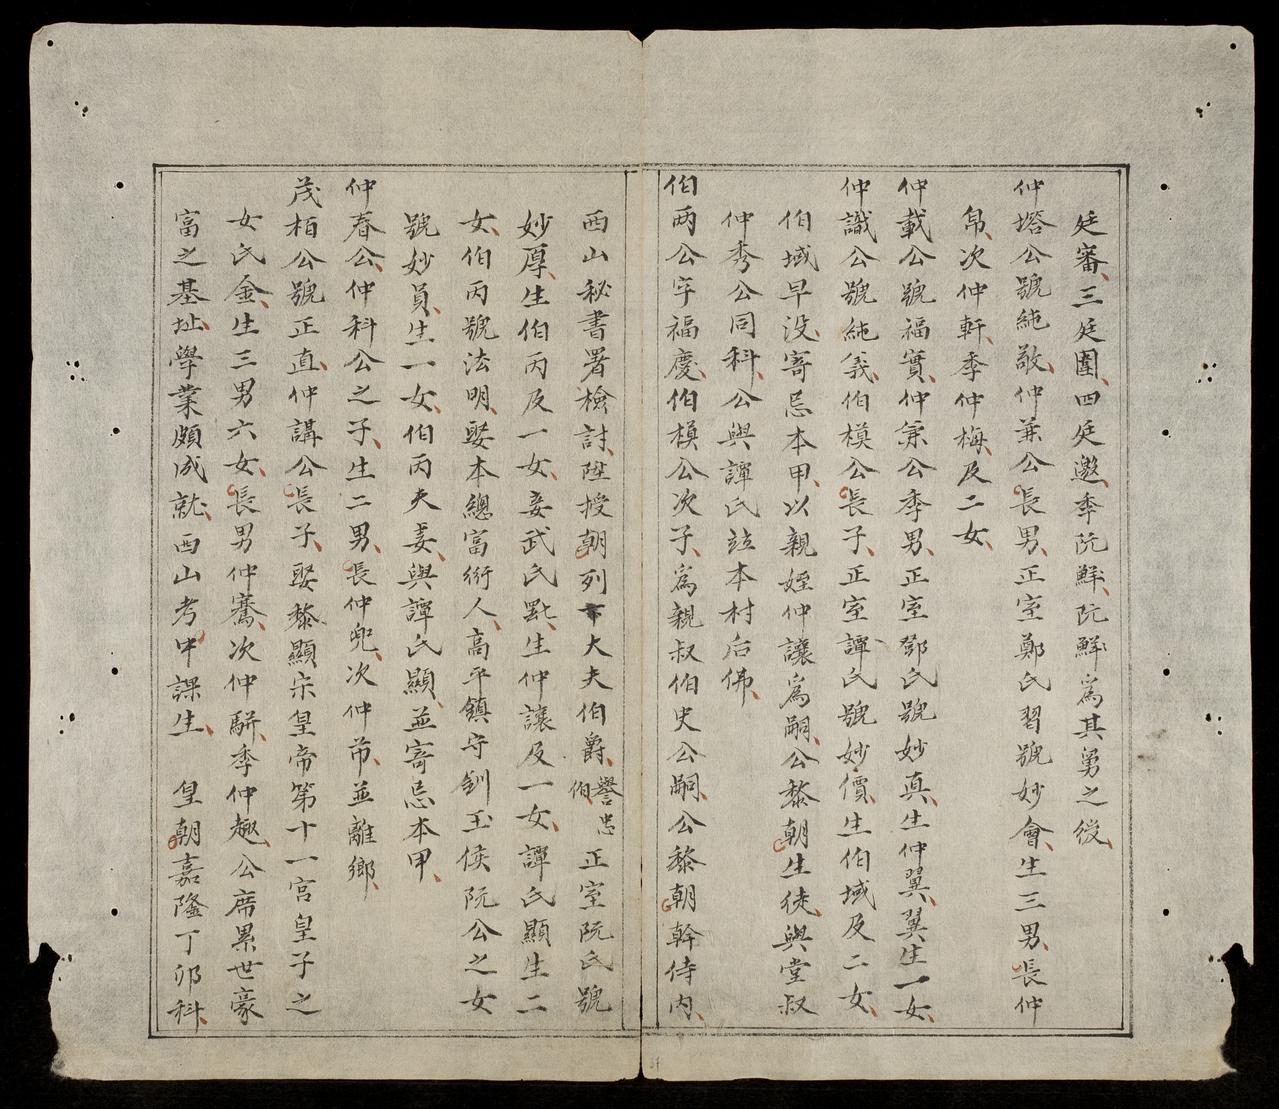 廷審三廷圍四廷邀季阮鮮阮鮮爲其勇之役
仲塔公號純敬仲兼公長男正室鄭氏習號妙會生三男長仲
帛次仲軒季仲梅及二女
仲載公號福實仲兼公季男正室鄧氏號妙真生仲翼翼生一女
仲識公號純義伯模公長子正室譚氏號妙價生伯域及二女
伯域早没寄忌本甲以親姪仲讓爲嗣公黎朝生徒與堂叔
仲秀公同科公與譚氏竝本村后佛
伯两公字福慶伯模公次子爲親叔伯史公嗣公黎朝幹侍内
西山秘書署檢討陞授朝列大夫伯爵譽忠伯正室阮氏號
妙厚生伯丙及一女妾武氏㸃生仲讓及一女譚氏顯生二
女伯丙號法明娶本總富衍人高平鎮守釗玉侯阮公之女
號妙員生一女伯丙夫妻與譚氏顯並寄忌本甲
仲春公仲科公之子生二男長仲兜次仲芇並離鄉
茂栢公號正直仲講公長子娶黎顯宗皇帝第十一宮皇子之
女氏金生三男六女長男仲騫次仲駢季仲趣公席累世豪
富之基址學業頗成就西山考中課生 皇朝嘉隆丁卯科